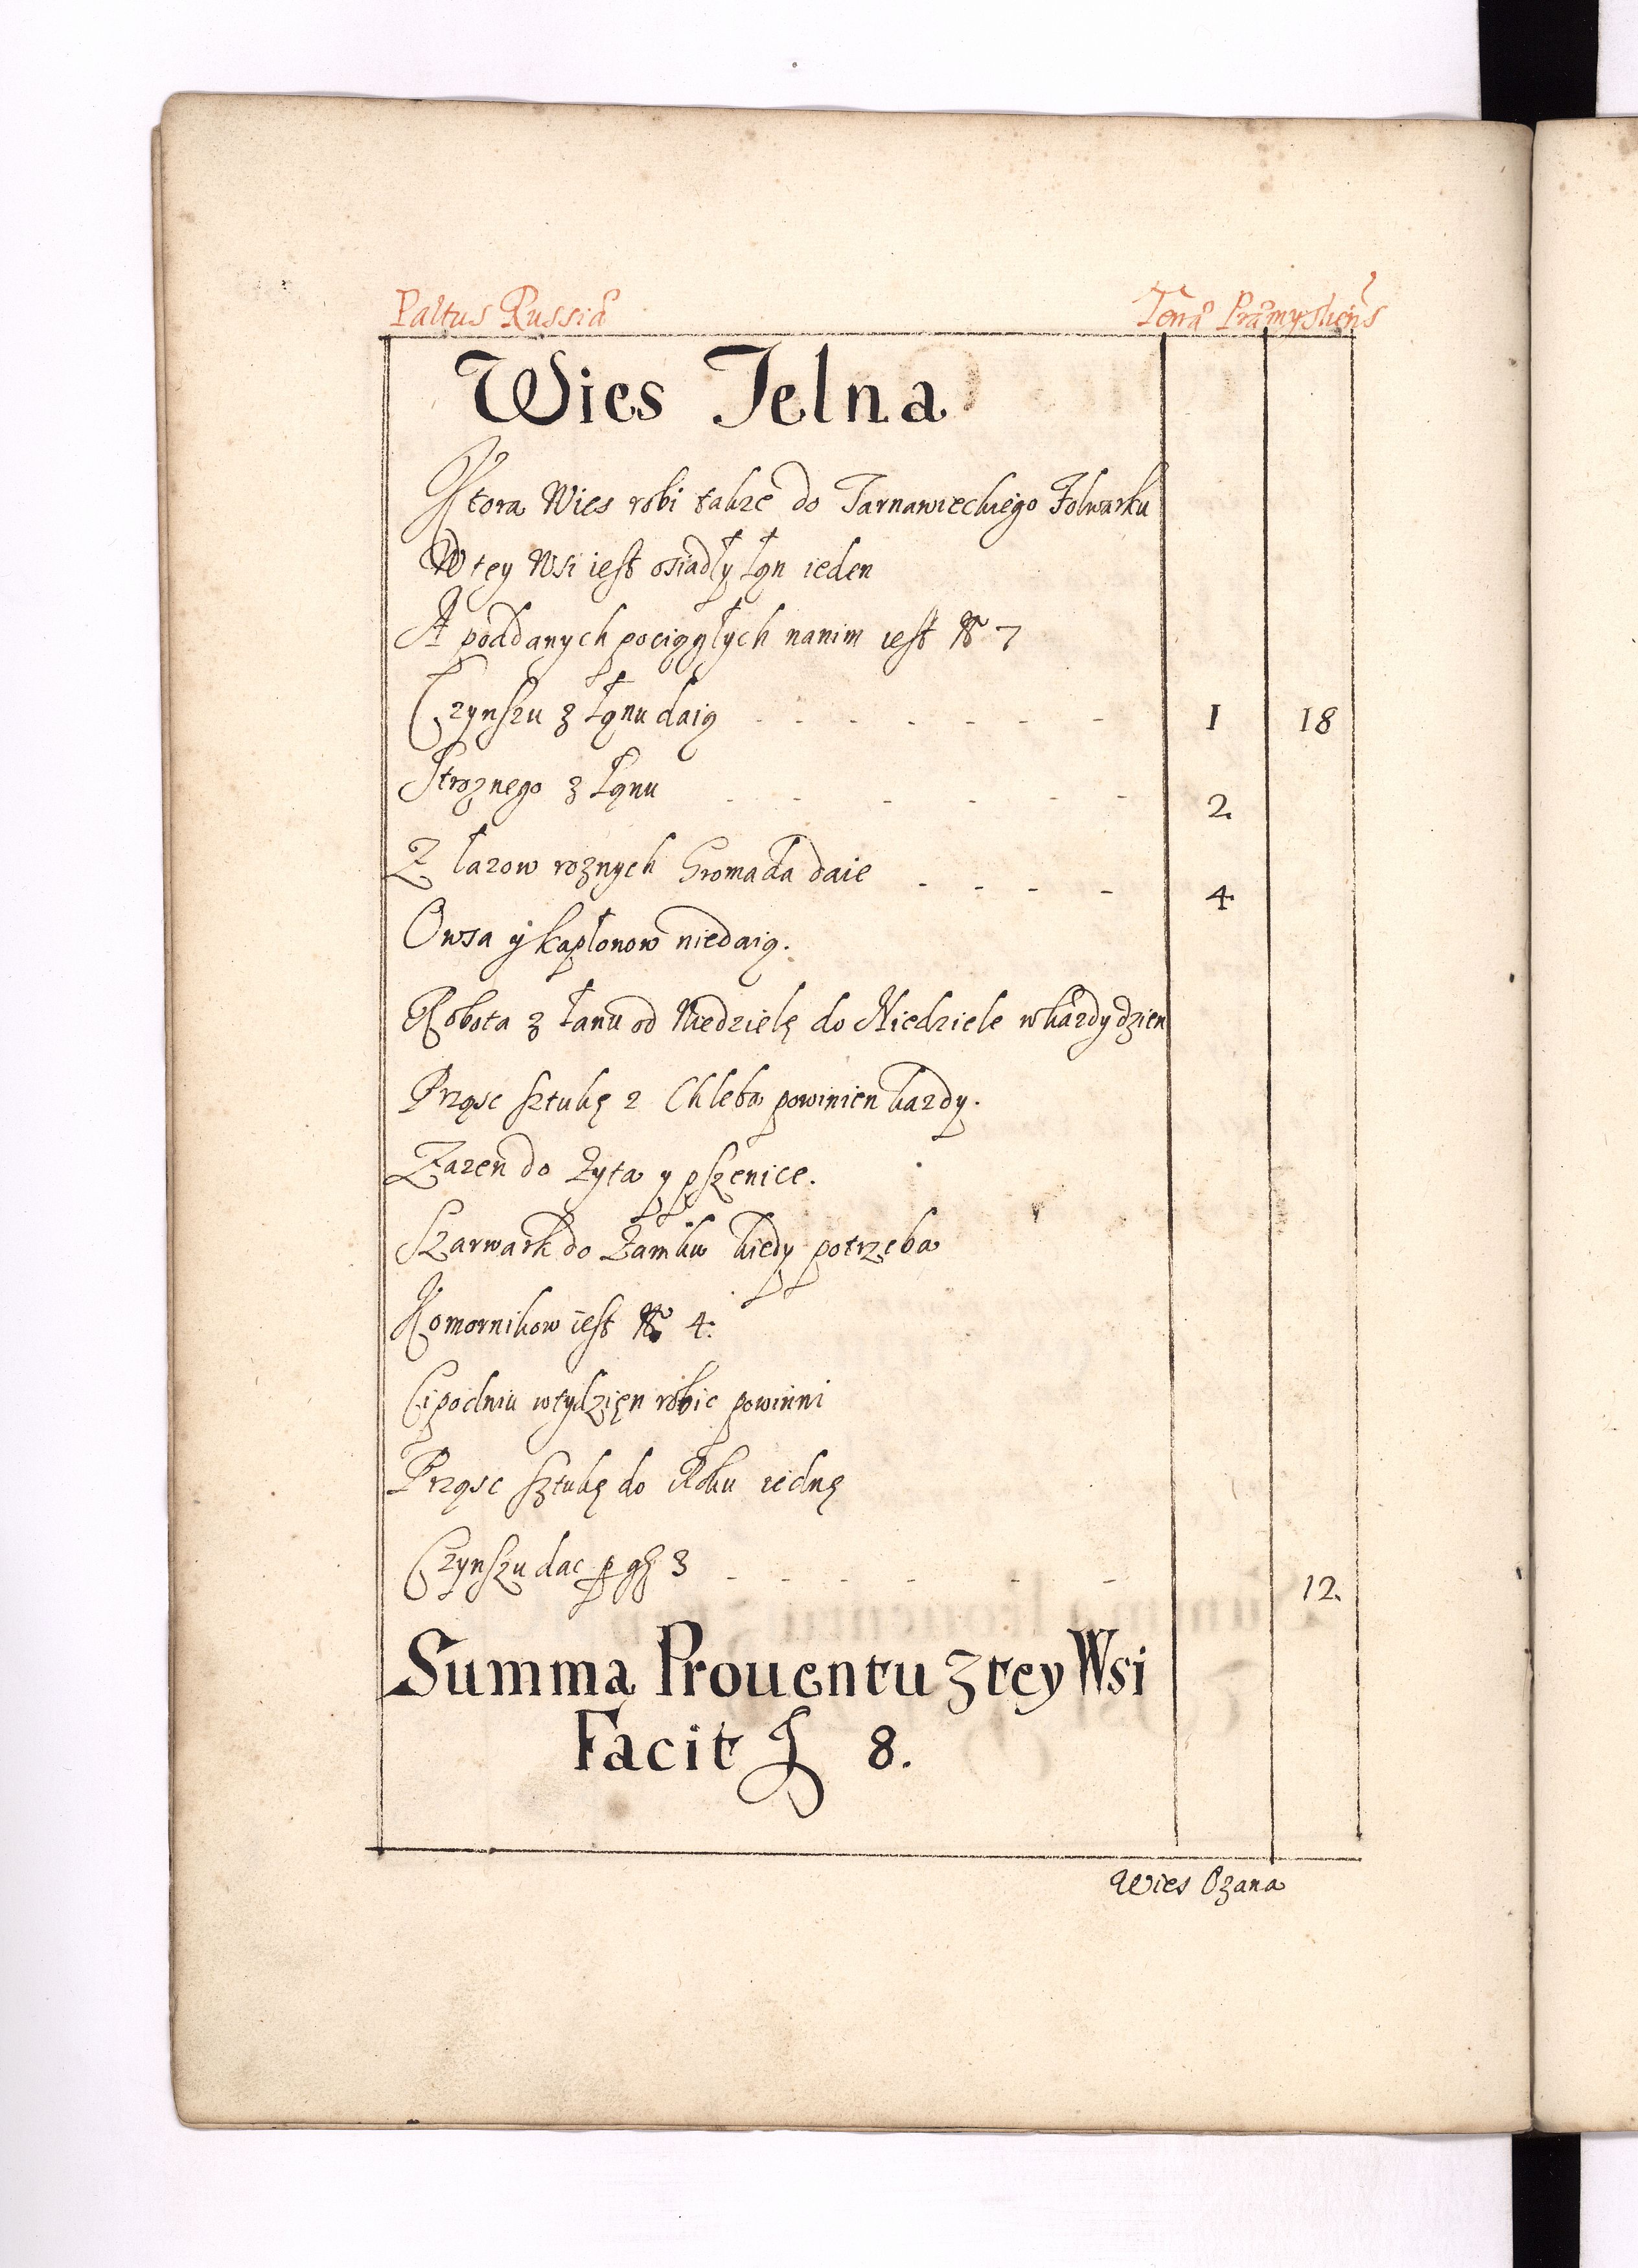 Paltus Russiæ Terræ Præmysliens
Wies Jelna
Ktora Wies robi takze do Tarnawieckiego Folwarku
W tey Wsi iest osiadły Łąn ieden
A poddanych pociągłych nanim iest No 7
Czynszu z Łąnu daią - - - - - - - 1 18
Stroznego z Łąnu - - - - - - 2.
Z łazow roznych Gromada daie - - - - 4
Owsa y kapłonow niedaią.
Robota z Łanu od Niedzielę do Niedziele w kazdy dzien
Prząsc sztukę z Chleba powinien kazdy.
Zaren do Zyta y pszenice.
Szarwark do Zamku kiedy potrzeba
Komornikow iest No 4.
Ci podniu w tydzięn robic powinni
Prząsc sztukę do Roku iednę
Czynszu dac p gr 3 - - - - - - 12.
Summa Prouentu z tey Wsi
Facit f 8.
Wies Ozana